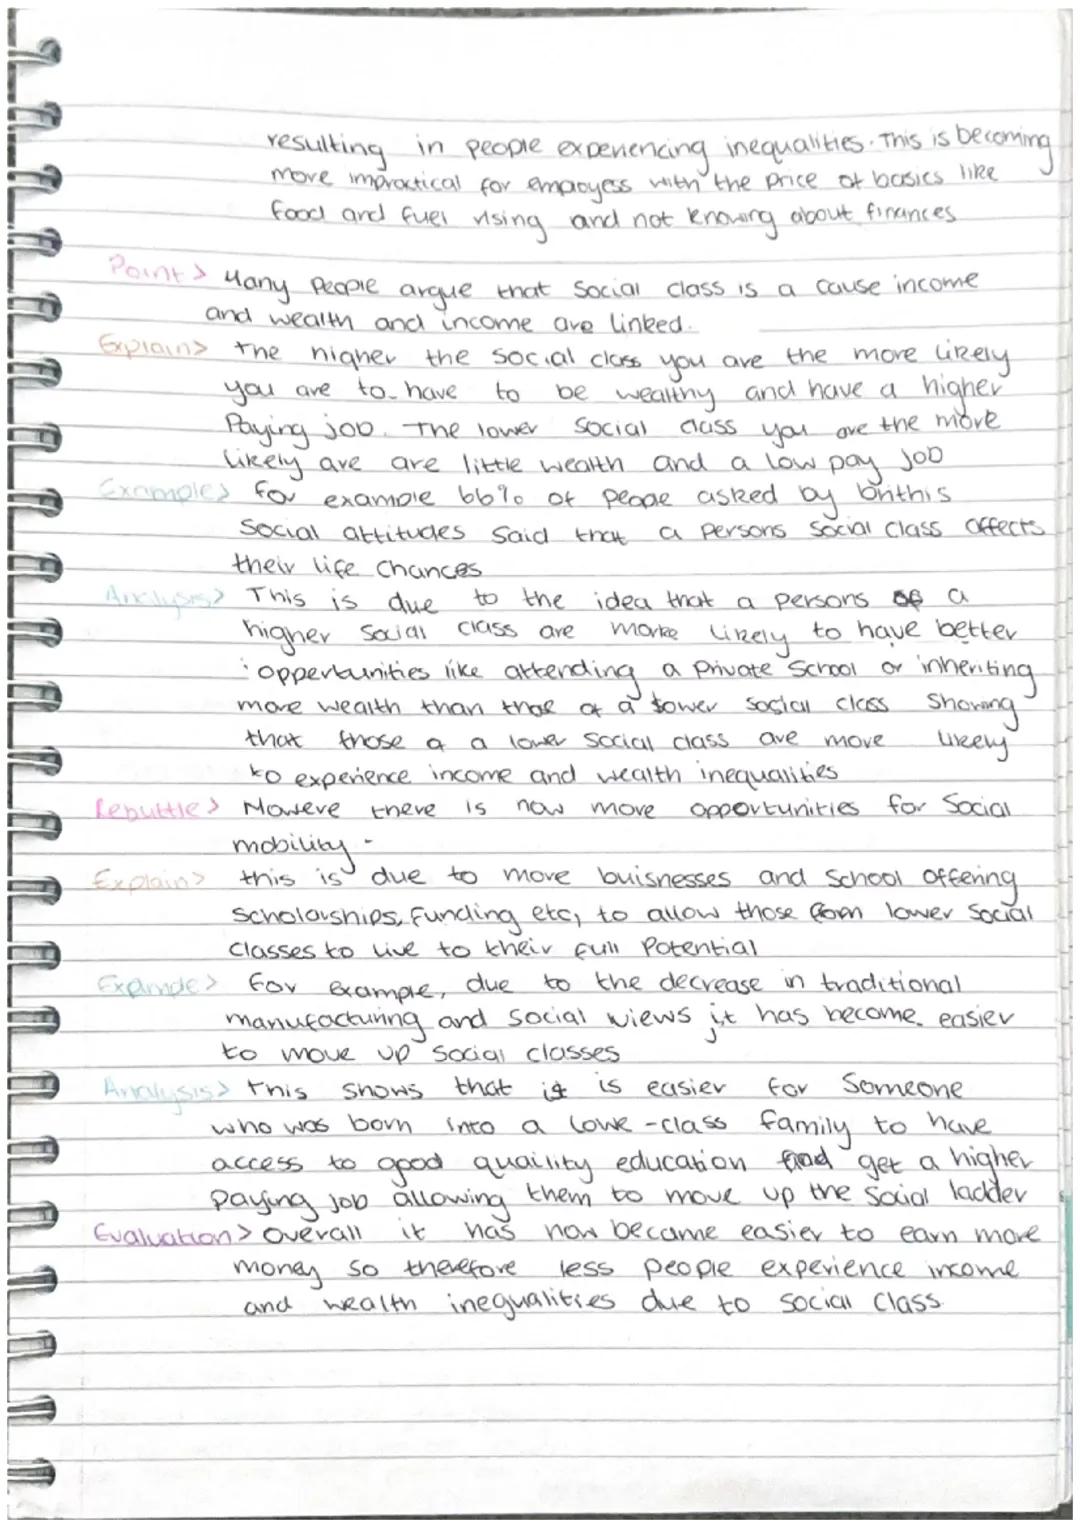 resulting in people experiencing inequalities. This is becoming
more impractical for empaoyess with the price of basics like
food and fuel rising and not knowing about finances
Point> Many people argue that social class is a cause income
and wealth and income are linked.
Explain> the higher the social class you are the more likely
you are to have to be wealthy and have a higher
Paying job. The lower social class you are the more
likely are are little wealth and a low pay job
Example> for example 66% of people asked by brithis
social attitudes said that a persons social class affects
their life chances
Analysis> This is due to the idea that a persons of a
higher social class are more likely to have better
opportunities like attending a private school or inheriting
more wealth than those of a lower social class showing
that those of a lower social class are more likely
to experience income and wealth inequalities
Rebuttle> Howeve there is now more opportunities for social
mobility -
Explain> this is due to more buisnesses and school offering
scholarships, funding etc, to allow those from lower social
classes to live to their full potential
Example> for example, due to the decrease in traditional
manufacturing and social views it has become easier
to move up social classes
Analysis> this shows that it is easier for someone
who was born into a lowe-class family to have
access to good quaility education and get a higher
paying job allowing them to move up the social ladder
Evaluation> Overall it has now became easier to earn more
money so therefore less people experience income
and wealth inequalities due to social class